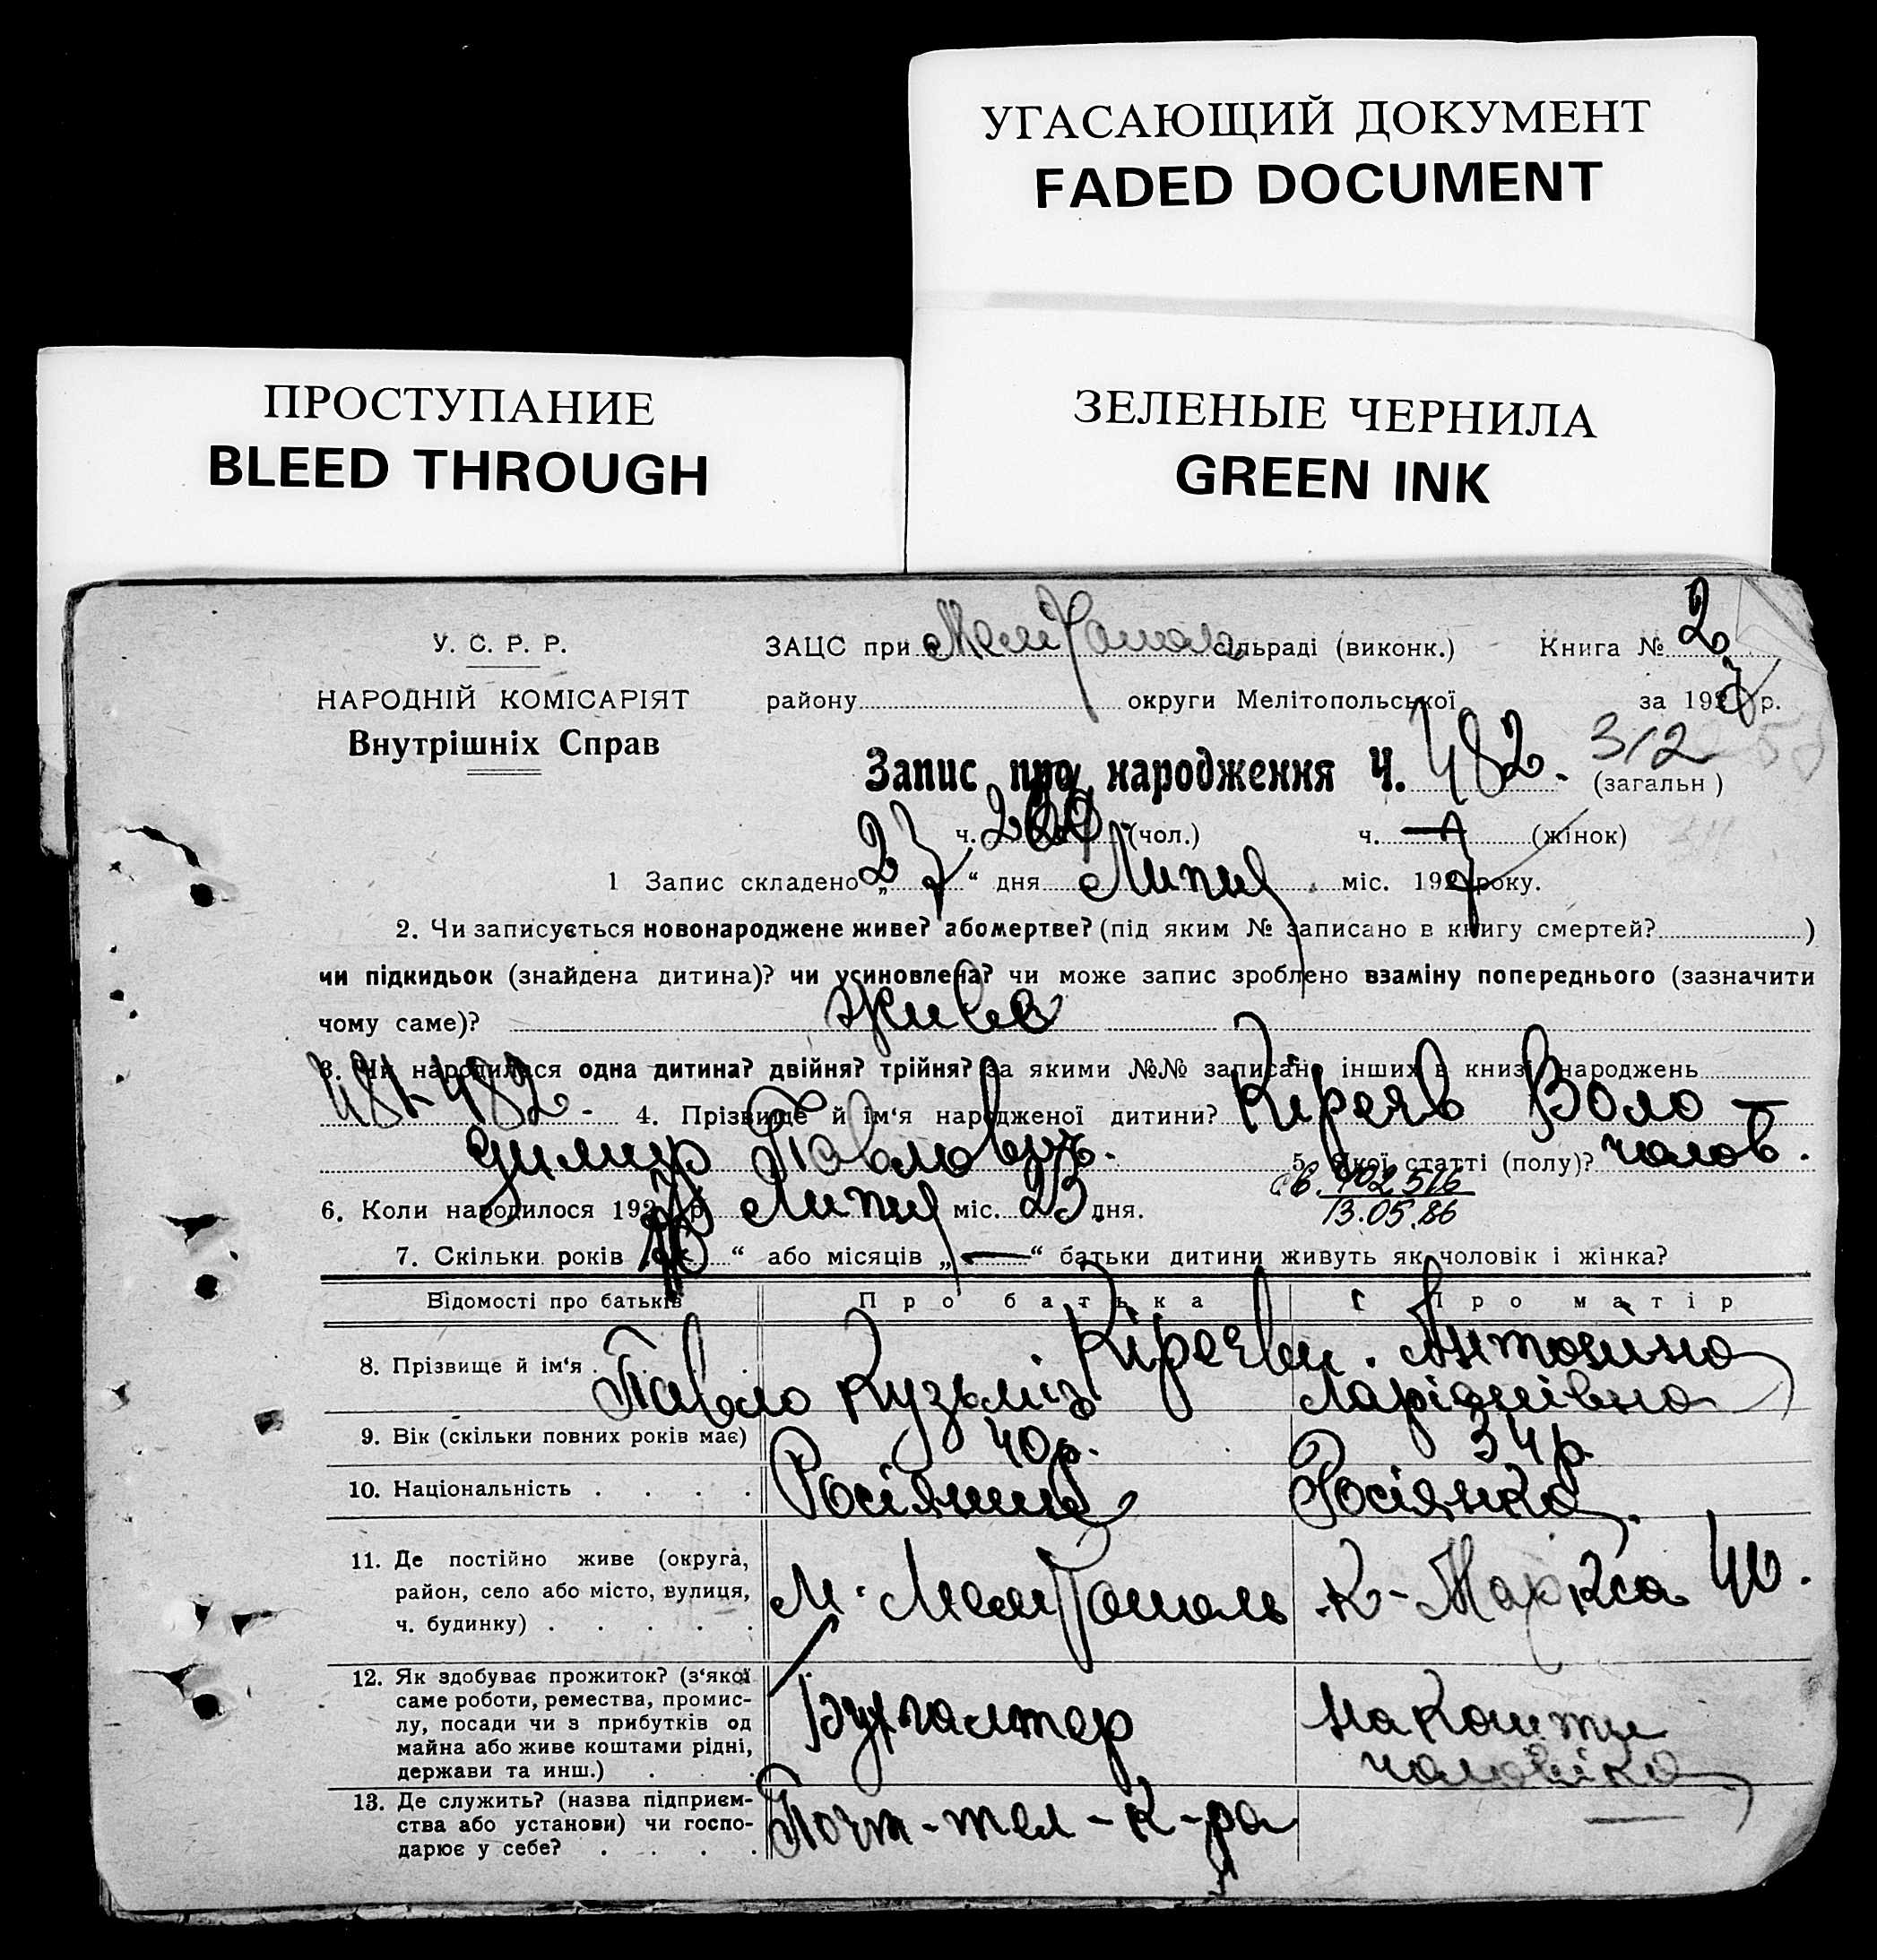 УГАСАЮЩИЙ ДОКУМЕНТ
FADED DOCUMENT
ПРОСТУПАНИЕ
BLEED THROUGH
ЗЕЛЕНЫЕ ЧЕРНИЛА
GREEN INK
У. С. Р. Р.
НАРОДНІЙ КОМІСАРІЯТ
Внутрішніх Справ
ЗАЦС при сільраді (виконк.) Книга № 2
району округи Мелітопольської за 1927 р.
Запис про народження Ч. 482. 312 (загальн)
ч. (чол.) ч. — (жінок)
1 Запис складено „27“ дня Липня міс. 1927 року.
2. Чи записується новонароджене живе? або мертве? (під яким № записано в книгу смертей? )
чи підкидьок (знайдена дитина)? чи усиновлена? чи може запис зроблено взаміну попереднього (зазначити
чому саме)? живе
3. Чи народилася одна дитина? двійня? трійня? за якими №№ записано інших в книзі народжень
481-482- 4. Прізвище й ім‘я народженої дитини? Кіреяв Воло-
димир Павлович. 5. Якої статті (полу)? чолов.
св. 402516
13.05.86
6. Коли народилося 1927 р. Липня міс. 23 дня.
7. Скільки років „ “ або місяців „—“ батьки дитини живуть як чоловік і жінка?
Відомості про батьків Про батька Про матір
8. Прізвище й ім‘я . Кіреяви. Антоніна
Павло Кузьміч Ларіонівна
9. Вік (скільки повних років має) 40 р. 34 р.
10. Національність . . . . Росіянин Росіянка.
11. Де постійно живе (округа,
район, село або місто, вулиця,
ч. будинку) . . . . . м. Мелітополь К-Маркса 40.
12. Як здобуває прожиток? (з‘якої
саме роботи, ремества, промис-
лу, посади чи з прибутків од
майна або живе коштами рідні,
держави та инш.) . . . Бухгалтер на кошти
чоловіка
13. Де служить? (назва підприєм-
ства або установи) чи госпо-
дарює у себе? . . . . Почт-тел-к-ра —